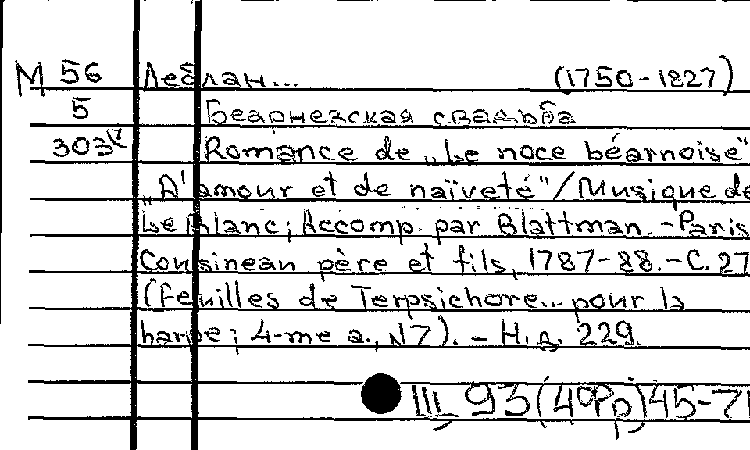 М 56 Леблан... (1750-1827)
5 Беарнезская свадьба
303 Romance de „Le noce béarnoise"
„D'amour et de naïveté"/Musique de
Le Blanc; Accomp. par Blattman. - Paris
Cousinean père et fils, 1787-88. - С. 27
(Feuilles de Terpsichore... pour la
harpe; 4-me a., N7). - Н. д. 229.
III 93(40Рр)45-71